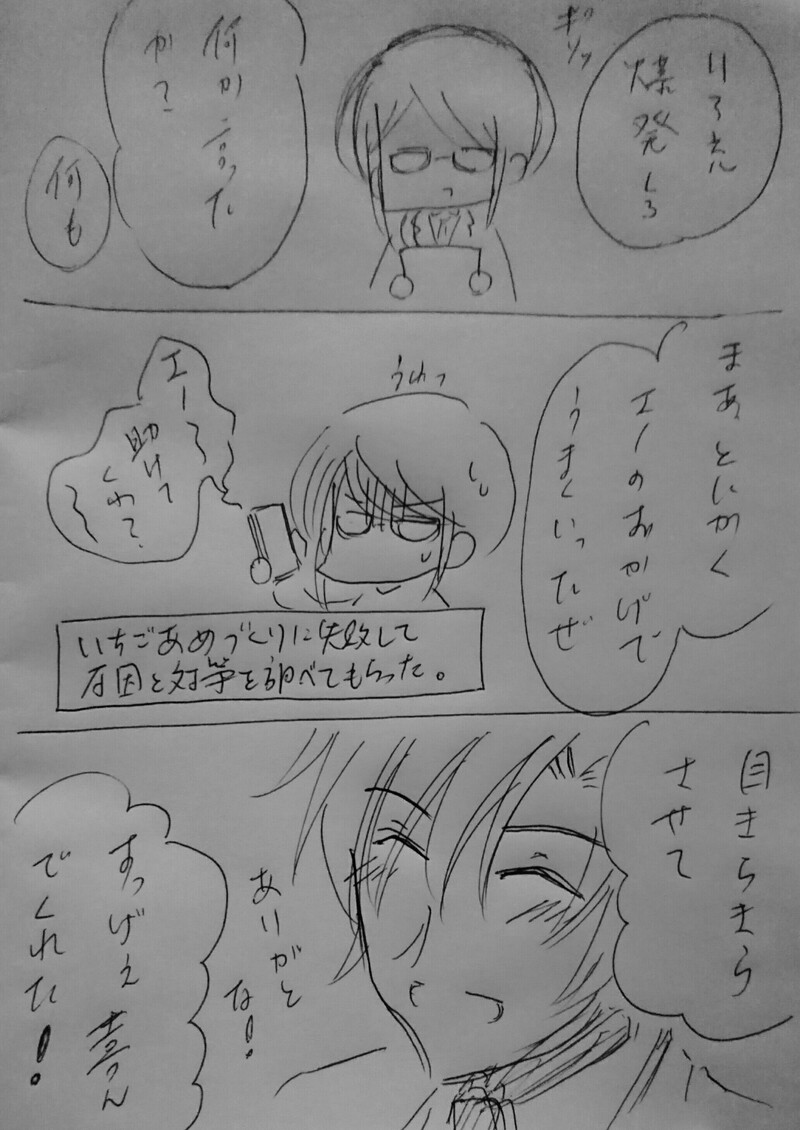 リア充
爆発しろ
ボソッ
何か言った
かて
何も
まあとにかく
エーのおかげで
うまくいったぜ
うわっ
エー〜
助けて
くれて
いちごあめづくりに失敗して
原因と対策を調べてもらった。
目きらきら
させて
すっげえ喜ん
でくれた!
ありがと
な!